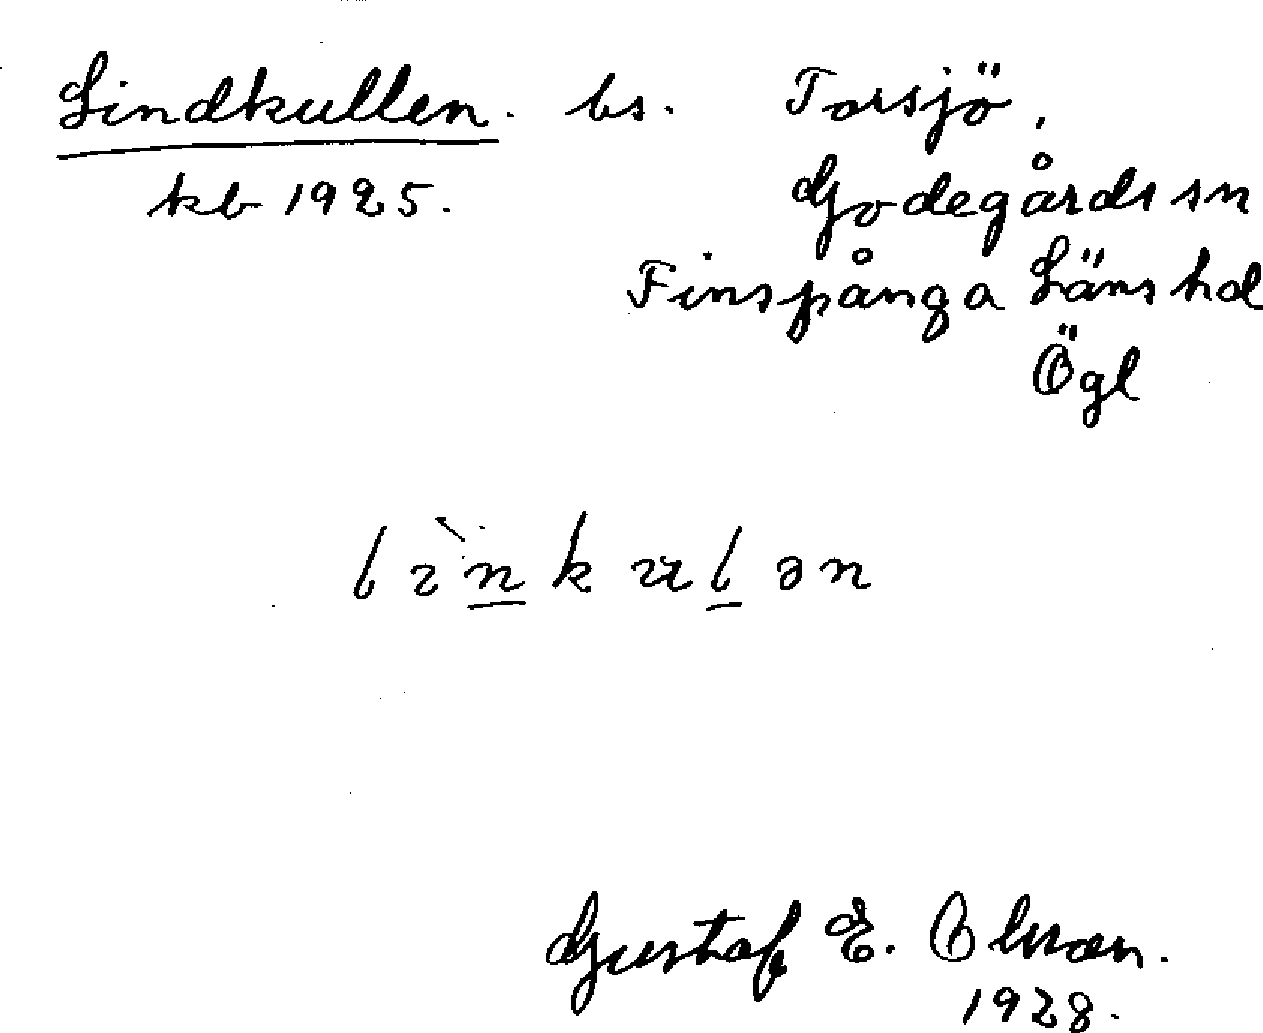 Lindkullen. bs. Torsjö,
kb 1925. Godegårds sn
Finspånga Läns hd
Ögl
lìnkulən
Gustaf E. Olsson.
1928.